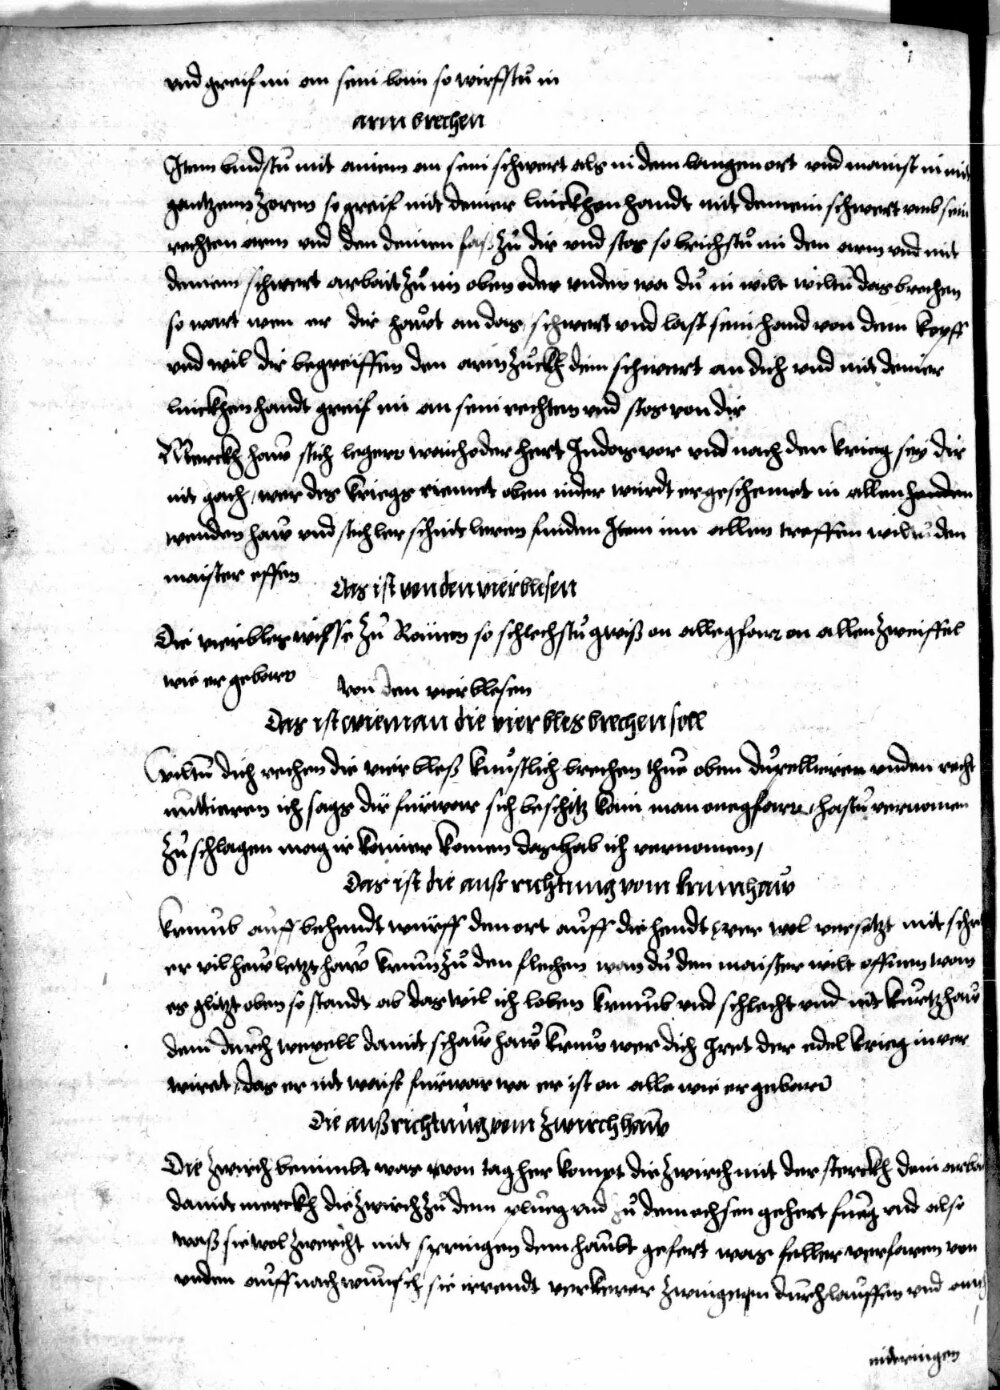 vnd greif im an sein bain so wirfstu in
arm brechen
Item bindstu mit ainem an sein schwert als in dem langen ort vnd mainst in mit
gantzem zoren so greif mit deiner linckhen handt mit deinem schwert vmb sein
rechten arm vnd den deinen fas zu dir vnd stos so brichstu im den arm vnd mit
deinem schwert arbait zu im oben oder vnden wa du in wilt wiltu das brechen
so wart wen er dir hawt an das schwert vnd last sein hand von dem kopff
vnd wil dir begreiffen den arm zuckh dein schwert an dich vnd mit deiner
linckhen handt greif im an sein rechten vnd stos von dir
Merckh haw stich legers waich oder hert Indas vor vnd nach den krieg sey dir
nit gach wer des kriegs riemet oben nider wirdt er geschemet in allen henden
wenden haw vnd stich ler schnit leren finden Item inn allen treffen wiltu den
maister effen
Das ist von den vier blesen
Die vier bles wisse zu Ramen so schlechstu gwiß on alle gfarr on allen zweiffel
wie er gebare
von den vier blesen
Das ist wie man die vier bles brechen soll
Wiltu dich rechen die vier bleß kunstlich brechen thue oben duplieren vnden recht
muttieren ich sags dir fürwar sich beschitz kain man one gfarr hastu vernomen
zu schlagen mag ir kainer komen das hab ich vernomen
Das ist die auß richtung vom krumhaw
krumb auff behendt wurff den ort auff die hendt wer wol versetzt mit schrit
er vil hew letzt haw krum zu den flechen wan du den maister wilt offnen wan
es glitzt oben so standt ab das wil ich loben krumb vnd schlecht vnd nit kurtz haw
dem durch wexell damit schaw haw krum wer dich Iret der edel krieg in ver
wiret das er nit waist fürwar wa er ist on alle wie er gebare
Die auß richtung vom zwirchhaw
Die zwirch benimbt was von tag her kompt die zwirch mit der sterckh dein arbait
damit merckh die zwirch zu dem pflueg vnd zu dem ochsen gehert fueg vnd also
waß sie wol zwercht mit springen dem haubt gefert was feller verfaren von
vnden auff nach wunsch sie irrendt verkerer zwingen durch lauffen vnd auch
nider ringen